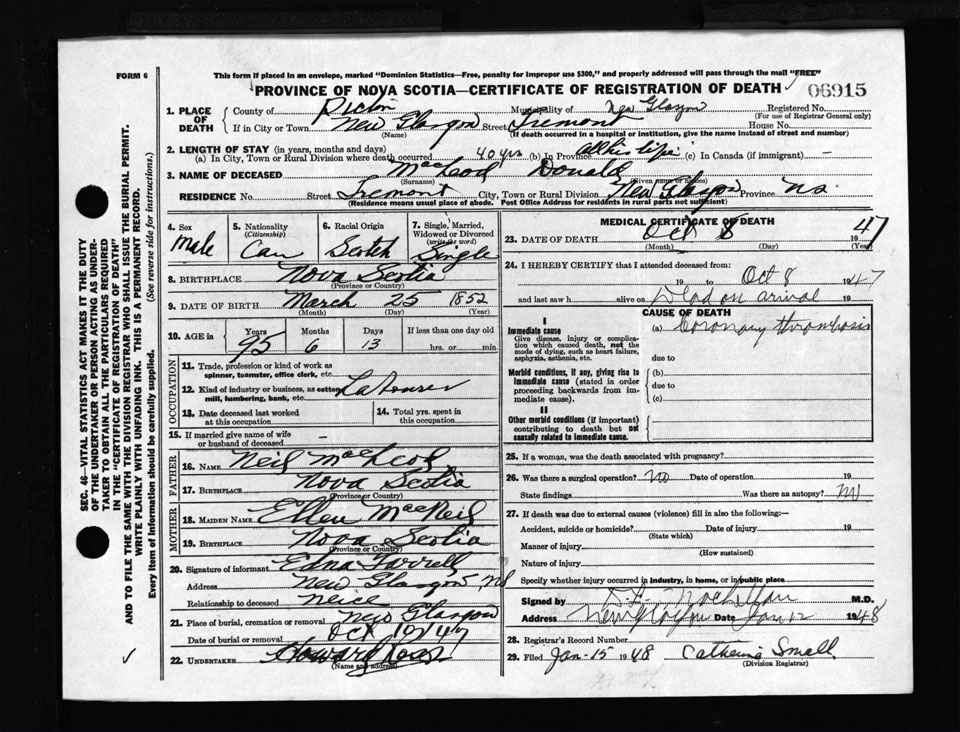 FORM 6
This form if placed in an envelope, marked "Dominion Statistics—Free, penalty for improper use $300," and properly addressed will pass through the mail "FREE"
PROVINCE OF NOVA SCOTIA—CERTIFICATE OF REGISTRATION OF DEATH 06915
1. PLACE OF DEATH
County of Pictou Municipality of New Glasgow Registered No.
(For use of Registrar General only)
If in City or Town New Glasgow Street House No.
(Name) (If death occurred in a hospital or institution, give the name instead of street and number)
2. LENGTH OF STAY (in years, months and days)
(a) In City, Town or Rural Division where death occurred 40 yrs (b) In Province all his life (c) In Canada (if immigrant) —
3. NAME OF DECEASED MacLeod Donald
(Surname) (Given name or names)
RESIDENCE No. Street City, Town or Rural Division New Glasgow Province NS
(Residence means usual place of abode. Post Office Address for residents in rural parts not sufficient)
4. Sex
Male
5. Nationality
(Citizenship)
Can
6. Racial Origin
Scotch
7. Single, Married, Widowed or Divorced
(write the word)
Single
8. BIRTHPLACE Nova Scotia
(Province or Country)
9. DATE OF BIRTH March 25 1852
(Month) (Day) (Year)
10. AGE in Years Months Days If less than one day old
95 6 13 hrs. or min.
OCCUPATION
11. Trade, profession or kind of work as spinner, teamster, office clerk, etc.
12. Kind of industry or business, as cotton mill, lumbering, bank, etc.
13. Date deceased last worked at this occupation
14. Total yrs. spent in this occupation
15. If married give name of wife or husband of deceased —
FATHER
16. NAME Neil MacLeod
17. BIRTHPLACE Nova Scotia
(Province or Country)
MOTHER
18. MAIDEN NAME Ellen MacNeil
19. BIRTHPLACE Nova Scotia
(Province or Country)
20. Signature of informant Edna Farrell
Address New Glasgow, NS
Relationship to deceased Neice
21. Place of burial, cremation or removal New Glasgow
Date of burial or removal Oct 10/47
22. UNDERTAKER Howard
(Name and address)
MEDICAL CERTIFICATE OF DEATH
23. DATE OF DEATH Oct 8 1947
(Month) (Day) (Year)
24. I HEREBY CERTIFY that I attended deceased from:
19 to Oct 8 1947
and last saw h alive on Dead on arival 19
CAUSE OF DEATH
I
Immediate cause
Give disease, injury or complication which caused death, not the mode of dying, such as heart failure, asphyxia, asthenia, etc.
(a) Coronary thrombosis
due to
Morbid conditions, if any, giving rise to immediate cause (stated in order proceeding backwards from immediate cause).
(b)
due to
(c)
II
Other morbid conditions (if important) contributing to death but not causally related to immediate cause.
25. If a woman, was the death associated with pregnancy?
26. Was there a surgical operation? no Date of operation 19
State findings Was there an autopsy? no
27. If death was due to external causes (violence) fill in also the following:—
Accident, suicide or homicide? Date of injury 19
(State which)
Manner of injury
(How sustained)
Nature of injury
Specify whether injury occurred in industry, in home, or in public place
Signed by M.D.
Address New Glasgow Date Jan 12 1948
28. Registrar's Record Number
29. Filed Jan-15 1948 Catherine Small
(Division Registrar)
SEC. 46—VITAL STATISTICS ACT MAKES IT THE DUTY
OF THE UNDERTAKER OR PERSON ACTING AS UNDERTAKER TO OBTAIN ALL THE PARTICULARS REQUIRED
IN THE "CERTIFICATE OF REGISTRATION OF DEATH"
AND TO FILE THE SAME WITH THE DIVISION REGISTRAR WHO SHALL ISSUE THE BURIAL PERMIT.
WRITE PLAINLY WITH UNFADING INK. THIS IS A PERMANENT RECORD.
Every item of information should be carefully supplied. (See reverse side for instructions.)